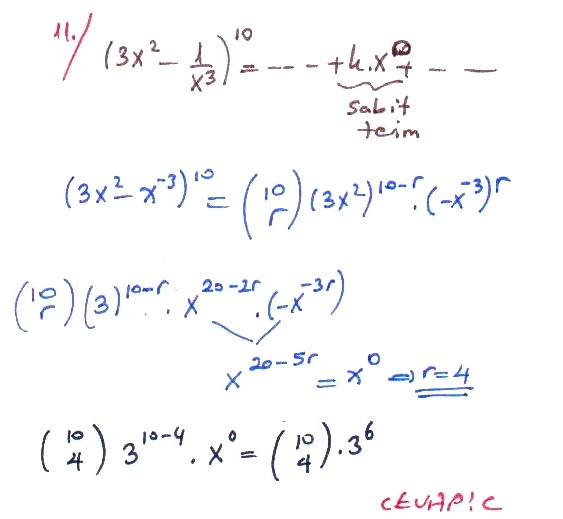 11./ (3x² - 1/x³)¹⁰ = --- + k.x⁰ + - —
Sabit
terim
(3x² - x⁻³)¹⁰ = (10 r) (3x²)¹⁰⁻ʳ . (-x⁻³)ʳ
(10 r) (3)¹⁰⁻ʳ . x²⁰⁻²ʳ . (-x⁻³ʳ)
x²⁰⁻⁵ʳ = x⁰ ⇒ r=4
(10 4) 3¹⁰⁻⁴ . x⁰ = (10 4) . 3⁶
CEVAP: C